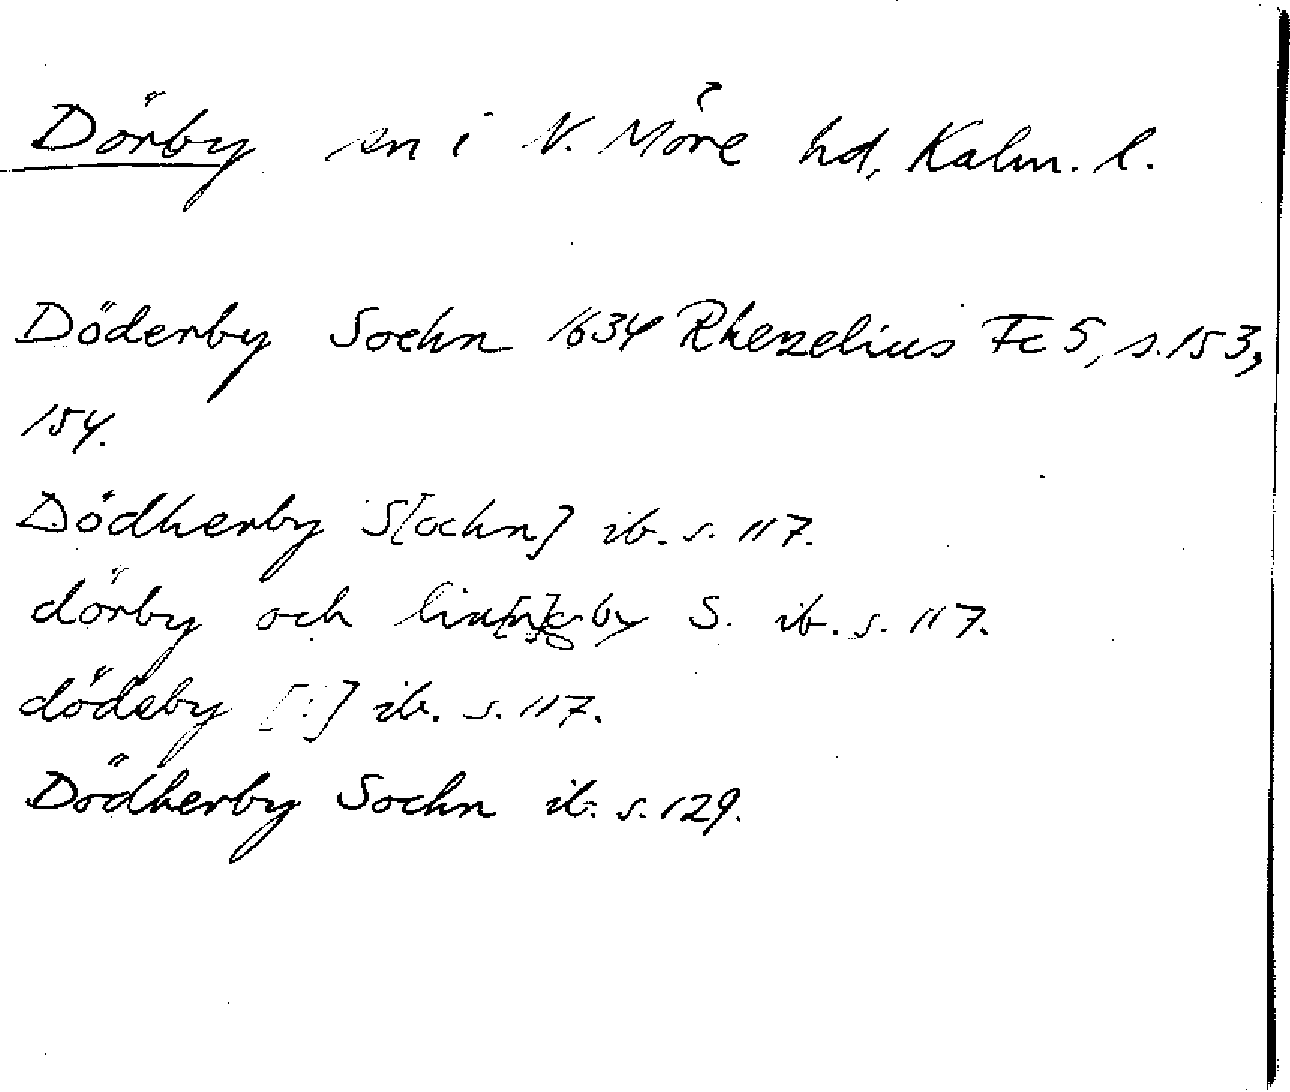 Dörby sn i N. Möre hd, Kalm. l.
Döderby Sochn 1634 Rhezelius Fc 5, s. 153,
154.
Dödherby S[ochn] ib. s. 117.
dörby och S. ib. s. 117.
dödeby [!] ib. s. 117.
Dödherby Sochn ib. s. 129.